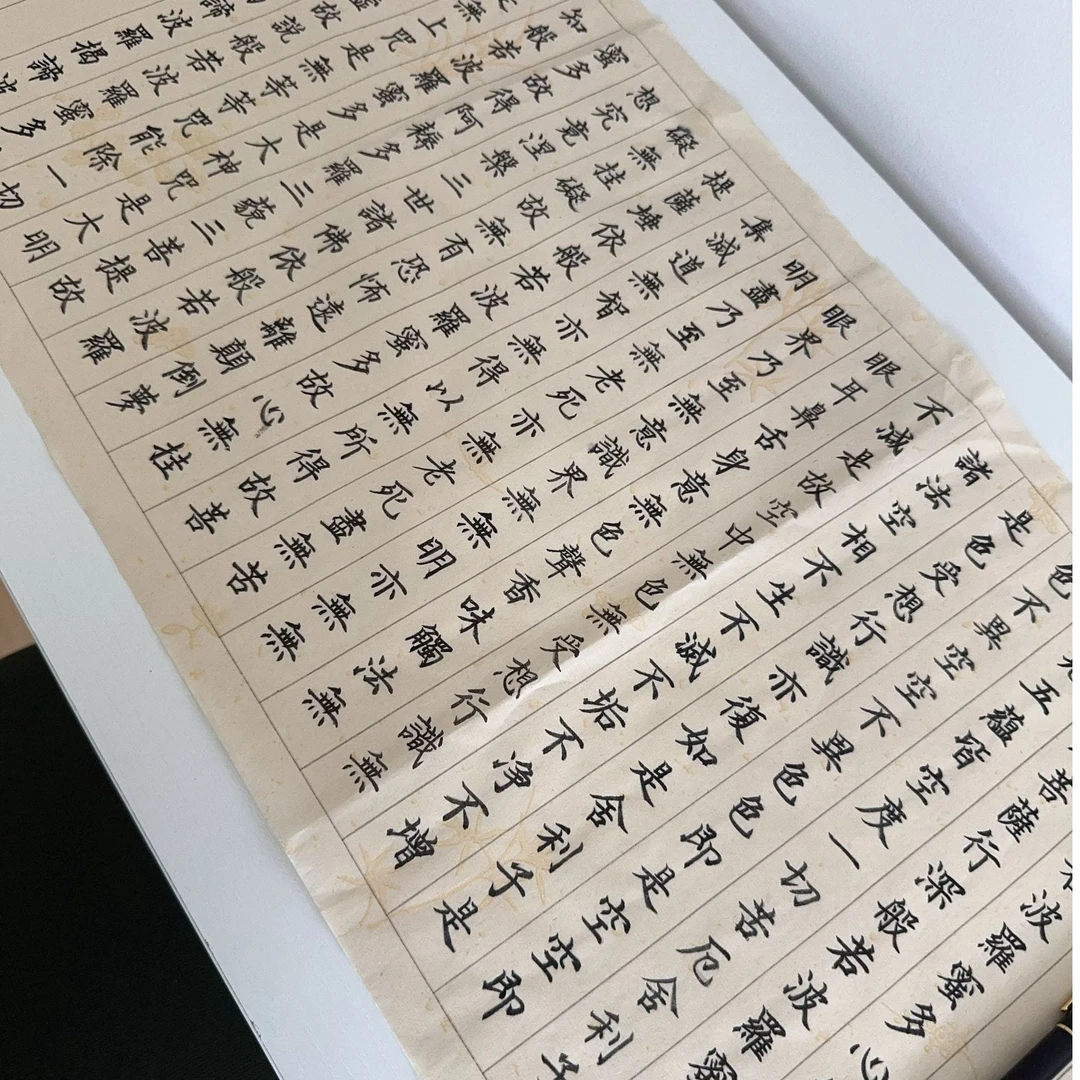 波羅蜜多心
菩薩行深般若波羅蜜
五蘊皆空度一切苦厄舍利子
色不異空空不異色色即是空空即
是色受想行識亦復如是舍利子是
諸法空相不生不滅不垢不淨不增
不滅是故空中無色無受想行識無
眼耳鼻舌身意無色聲香味觸法無
眼界乃至無意識界無無明亦無無
明盡乃至無老死亦無老死盡無苦
集滅道無智亦無得以無所得故菩
提薩埵依般若波羅蜜多故心無挂
礙無挂礙故無有恐怖遠離顛倒夢
想究竟涅槃三世諸佛依般若波羅
蜜多故得阿耨多羅三藐三菩提故
知般若波羅蜜多是大神咒是大明
無上咒是無等等咒能除一切
故說般若波羅蜜多
諦波羅揭諦